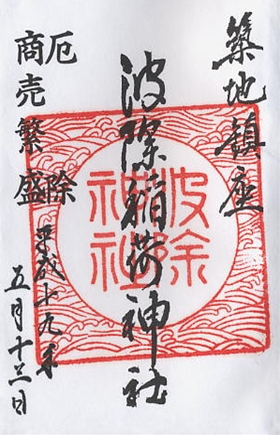 築地鎮座
波除稲荷神社
厄除
商売繁盛
平成十九年
五月十三日
波除
神社